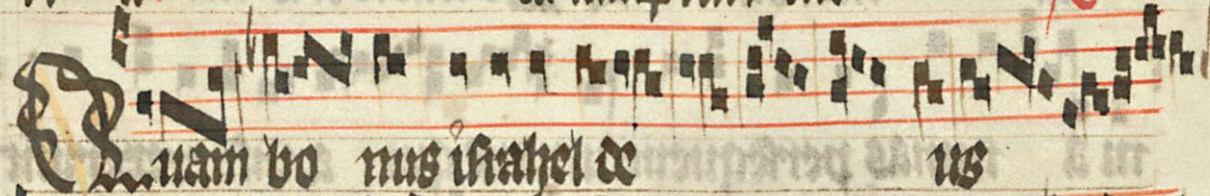 Quam bo nus israhel de us